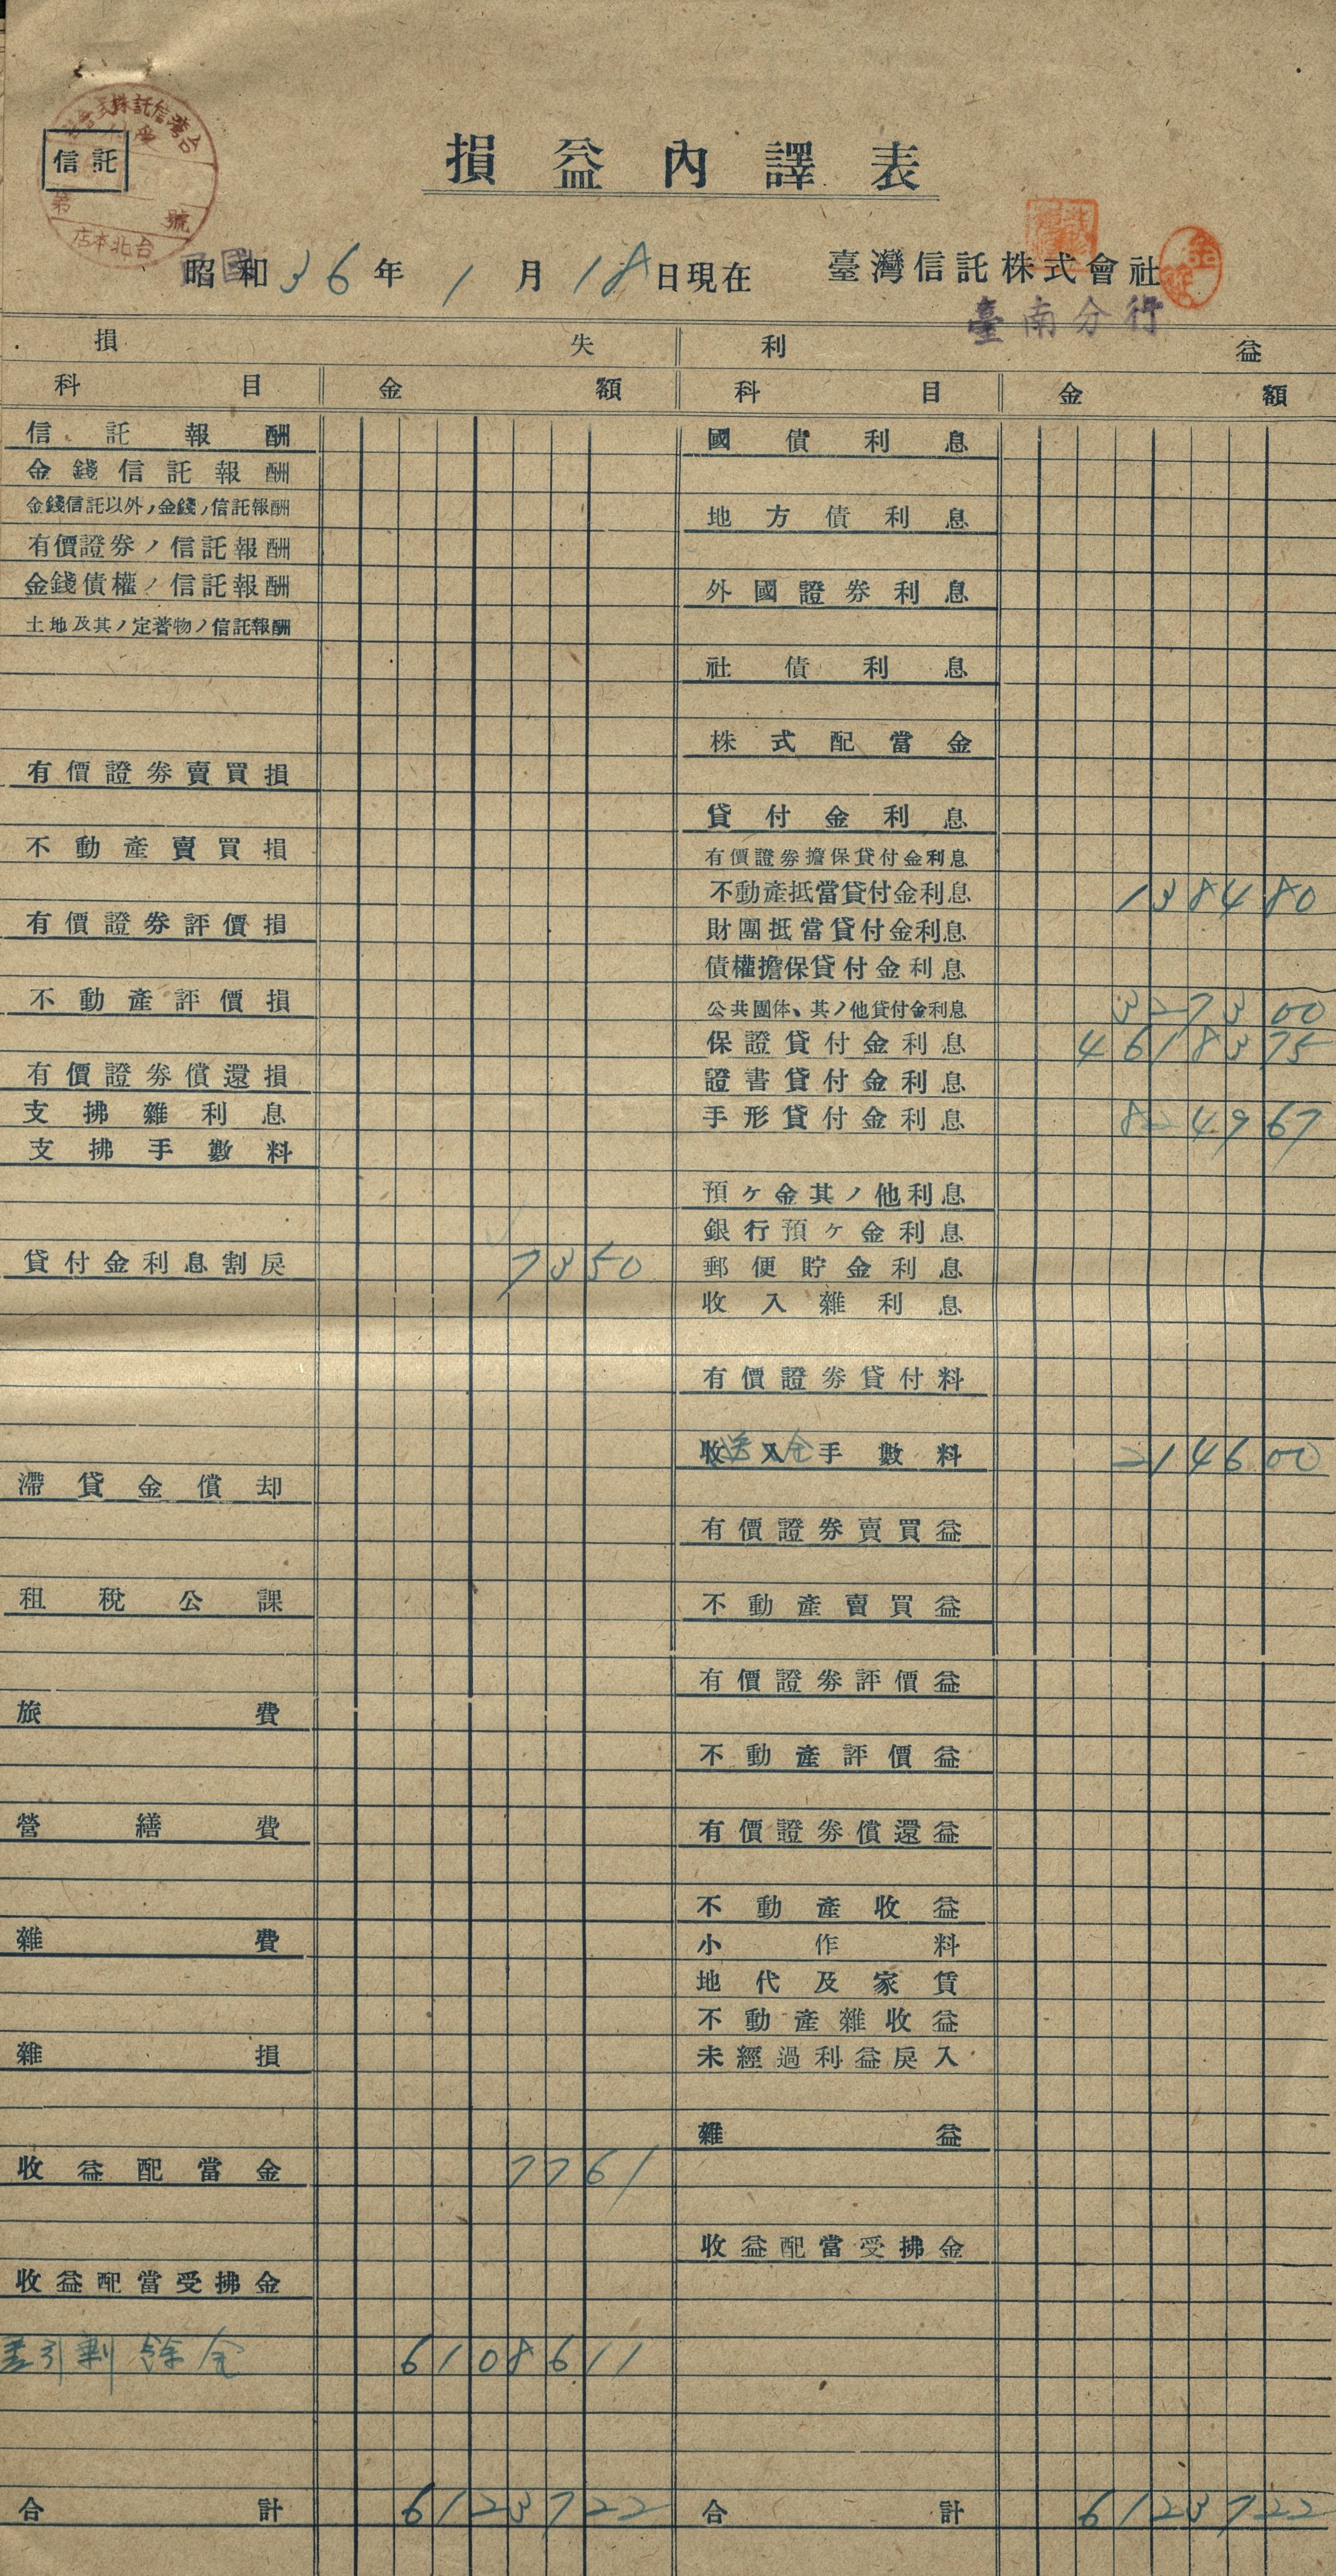 台灣信託株式會社
信託
第 號
台北本店
損益內譯表
民國
昭和36年1月18日現在 臺灣信託株式會社
臺南分行
損失 利益
科目 金額 科目 金額
信託報酬 國債利息
金錢信託報酬
金錢信託以外ノ金錢ノ信託報酬 地方債利息
有價證券ノ信託報酬
金錢債權ノ信託報酬 外國證券利息
土地及其ノ定著物ノ信託報酬
社債利息
株式配當金
有價證券賣買損
貸付金利息
不動產賣買損 有價證券擔保貸付金利息
不動產抵當貸付金利息 138480
有價證券評價損 財團抵當貸付金利息
債權擔保貸付金利息
不動產評價損 公共團体、其ノ他貸付金利息 327300
保證貸付金利息 4618375
有價證券償還損 證書貸付金利息
支拂雜利息 手形貸付金利息 824967
支拂手數料
預ケ金其ノ他利息
銀行預ケ金利息
貸付金利息割戾 7350 郵便貯金利息
收入雜利息
有價證券貸付料
收入手數料 送金 214600
滯貸金償却
有價證券賣買益
租稅公課 不動產賣買益
有價證券評價益
旅費
不動產評價益
營繕費 有價證券償還益
不動產收益
雜費 小作料
地代及家賃
不動產雜收益
雜損 未經過利益戾入
雜益
收益配當金 7761
收益配當受拂金
收益配當受拂金
差引剩餘金 6108611
合計 6123722 合計 6123722